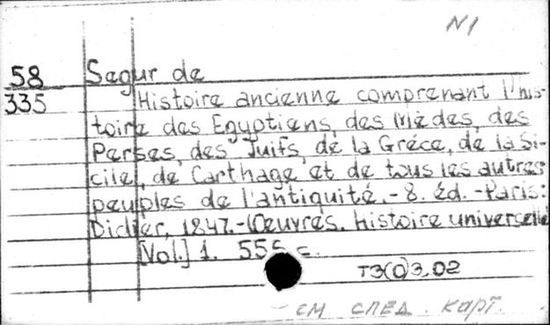 N1
58 Segur de
335 Histoire ancienne comprenant l'his-
toire des Egyptiens, des Mèdes, des
Perses, des Juifs, de la Grèce, de la Si-
cile, de Carthage et de tous les autres
peuples de l'antiquité. - 8. éd. - Paris:
Didier, 1847. - (Oeuvres. Histoire universelle
[Vol.] 1. 555 с.
T3(0)3,02
- см след. карт.